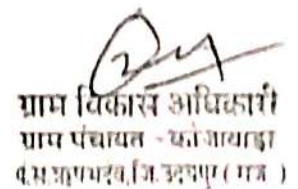 ग्राम विकास अधिकारी
ग्राम पंचायत - कोजावाड़ा
पं.स. ऋषभदेव, जि. उदयपुर ( राज )